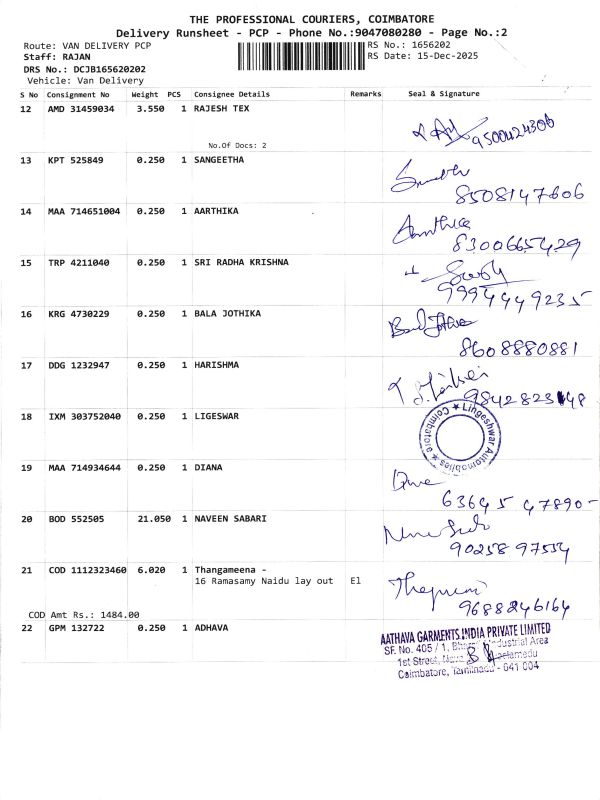 THE PROFESSIONAL COURIERS, COIMBATORE
Delivery Runsheet - PCP - Phone No.:9047080280 - Page No.:2
Route: VAN DELIVERY PCP RS No.: 1656202
Staff: RAJAN RS Date: 15-Dec-2025
DRS No.: DCJB165620202
Vehicle: Van Delivery
S No Consignment No Weight PCS Consignee Details Remarks Seal & Signature
12 AMD 31459034 3.550 1 RAJESH TEX
No.Of Docs: 2
9500424306
13 KPT 525849 0.250 1 SANGEETHA
8508147606
14 MAA 714651004 0.250 1 AARTHIKA
Aarthika
8300665429
15 TRP 4211040 0.250 1 SRI RADHA KRISHNA
9994449235
16 KRG 4730229 0.250 1 BALA JOTHIKA
8608880881
17 DDG 1232947 0.250 1 HARISHMA
18 IXM 303752040 0.250 1 LIGESWAR
Lingeshwar Automobiles
Coimbatore
19 MAA 714934644 0.250 1 DIANA
63645 47890
20 BOD 552505 21.050 1 NAVEEN SABARI
90258 97554
21 COD 1112323460 6.020 1 Thangameena -
16 Ramasamy Naidu lay out El
9688246164
COD Amt Rs.: 1484.00
22 GPM 132722 0.250 1 ADHAVA
AATHAVA GARMENTS INDIA PRIVATE LIMITED
SF. No. 405 / 1, Industrial Area
1st Street,
Coimbatore, Tamilnadu - 641 004